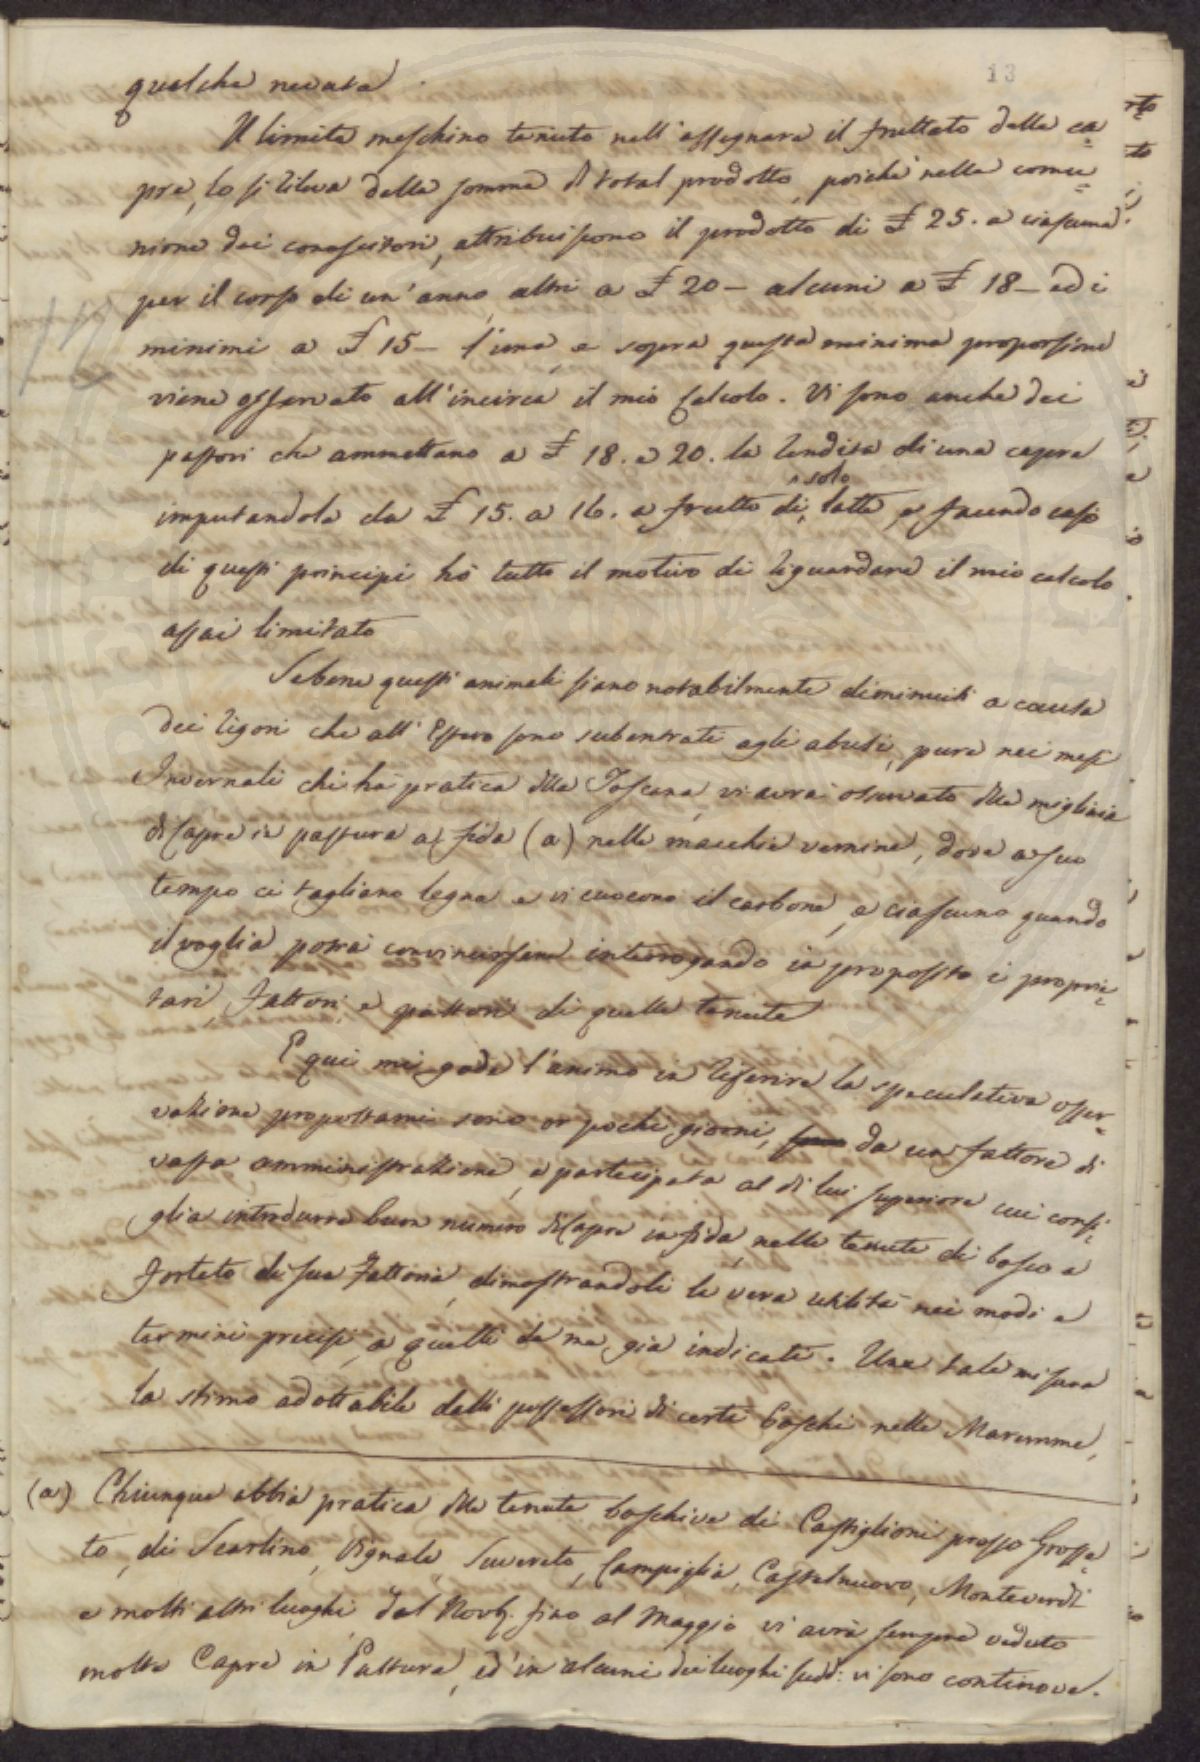 13
qualche nevata.
Il limite meschino tenuto nell'assegnare il fruttato delle ca=
pre, lo si rileva dalla somma di total prodotto, poichè nella comu=
nione dei conoscitori, attribuiscono il prodotto di £ 25. a ciascuna
per il corso di un'anno, altri a £ 20 – alcuni a £ 18 – ed i
minimi a £ 15 – l'una, e sopra questa minima proporsione
viene osservato all'incirca il mio Calcolo. Vi sono anche dei
pastori che ammettano a £ 18. e 20. la rendita di una capra
imputandola da £ 15. a 16. a frutto di solo latte, e facendo caso
di questi principi hò tutto il motivo di riguardare il mio calcolo
assai limitato
Sebene questi animali siano notabilmente diminuiti a causa
dei rigori che all' Estero sono subentrati agli abusi, pure nei mesi
Invernali chi hà pratica della Toscana, vi avrà osservato delle migliaia
di Capre in pastura a fida (a) nelle macchie vernine, dove a suo
tempo ci tagliano legna e vi cuocono il carbone, e ciascuno quando
il voglia potrà convincersene interrogando in proposito i proprie=
tari, Fattori, e pastori di quelle tenute
E qui mi gode l'animo in riferire la speculativa osser=
vazione propostami sono or pochi giorni, da un fattore di
vasta amministrazione, e partecipata al di lui superiore cui consi=
glia introdurre buon numero di Capre in fida, nelle tenute di bosco a
Forteto di sua Fattoria, dimostrandoli la vera utilità nei modi e
termini precisi, a quelli da me già indicati. Una tale misura
la stimo adottabile dalli possessori di certi boschi nelle Maremme,
(a) Chiunque abbia pratica delle tenute boschive di Castiglioni presso Grosse=
to, di Scarlino, Vignale, Suvereto, Campiglia, Castelnuovo, Monteverdi
e molti altri luoghi, dal Novb. fino al Maggio vi avrà sempre veduto
molte Capre in Pastura, ed in alcuni dei luoghi sudd: vi sono continove.